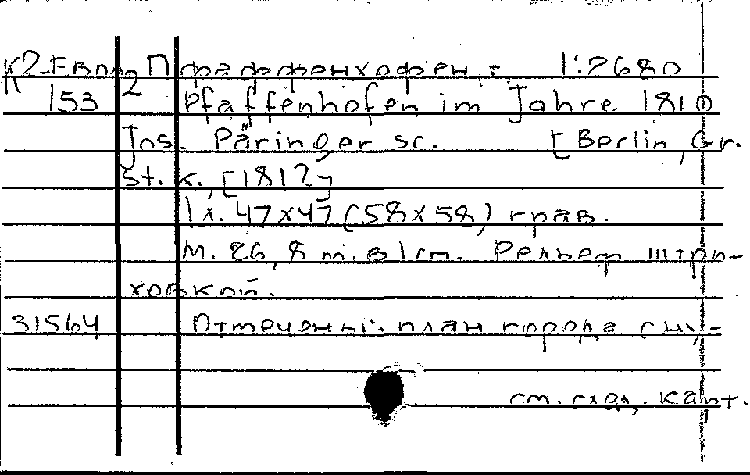 К2-Евр 2 Пфаффенхофен. 1:2680
153 Pfaffenhofen im Jahre 1810
Jos. Päringer sc. [Berlin, Gr.
St. k., [1812]
1 л. 47х47 (58х58) грав.
М. 26,8 m. в 1 см. Рельеф штри-
ховкой.
31564 Отмечены: план города с ну-
см. след. карт.